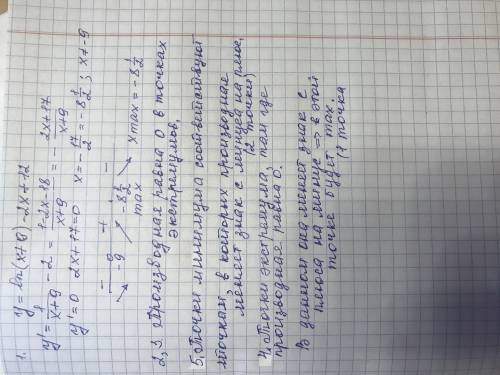 1. y = ln(x+9) - 2x + 12
y' = 1/(x+9) - 2 = (1-2x-18)/(x+9) = - (2x+17)/(x+9)
y' = 0 2x+17=0 x = - 17/2 = -8 1/2 ; x ≠ -9
- + -
-9 -8 1/2 x max = -8 1/2
max
2,3 Производная равна 0 в точках
экстремумов,
5. Точки минимума соответствуют
точкам, в которых производная
меняет знак с минуса на плюс,
(2 точки)
4. Точки экстремума, там где
производная равна 0.
В данном она меняет знак с
плюса на минус => в этой
точке будет max.
(1 точка